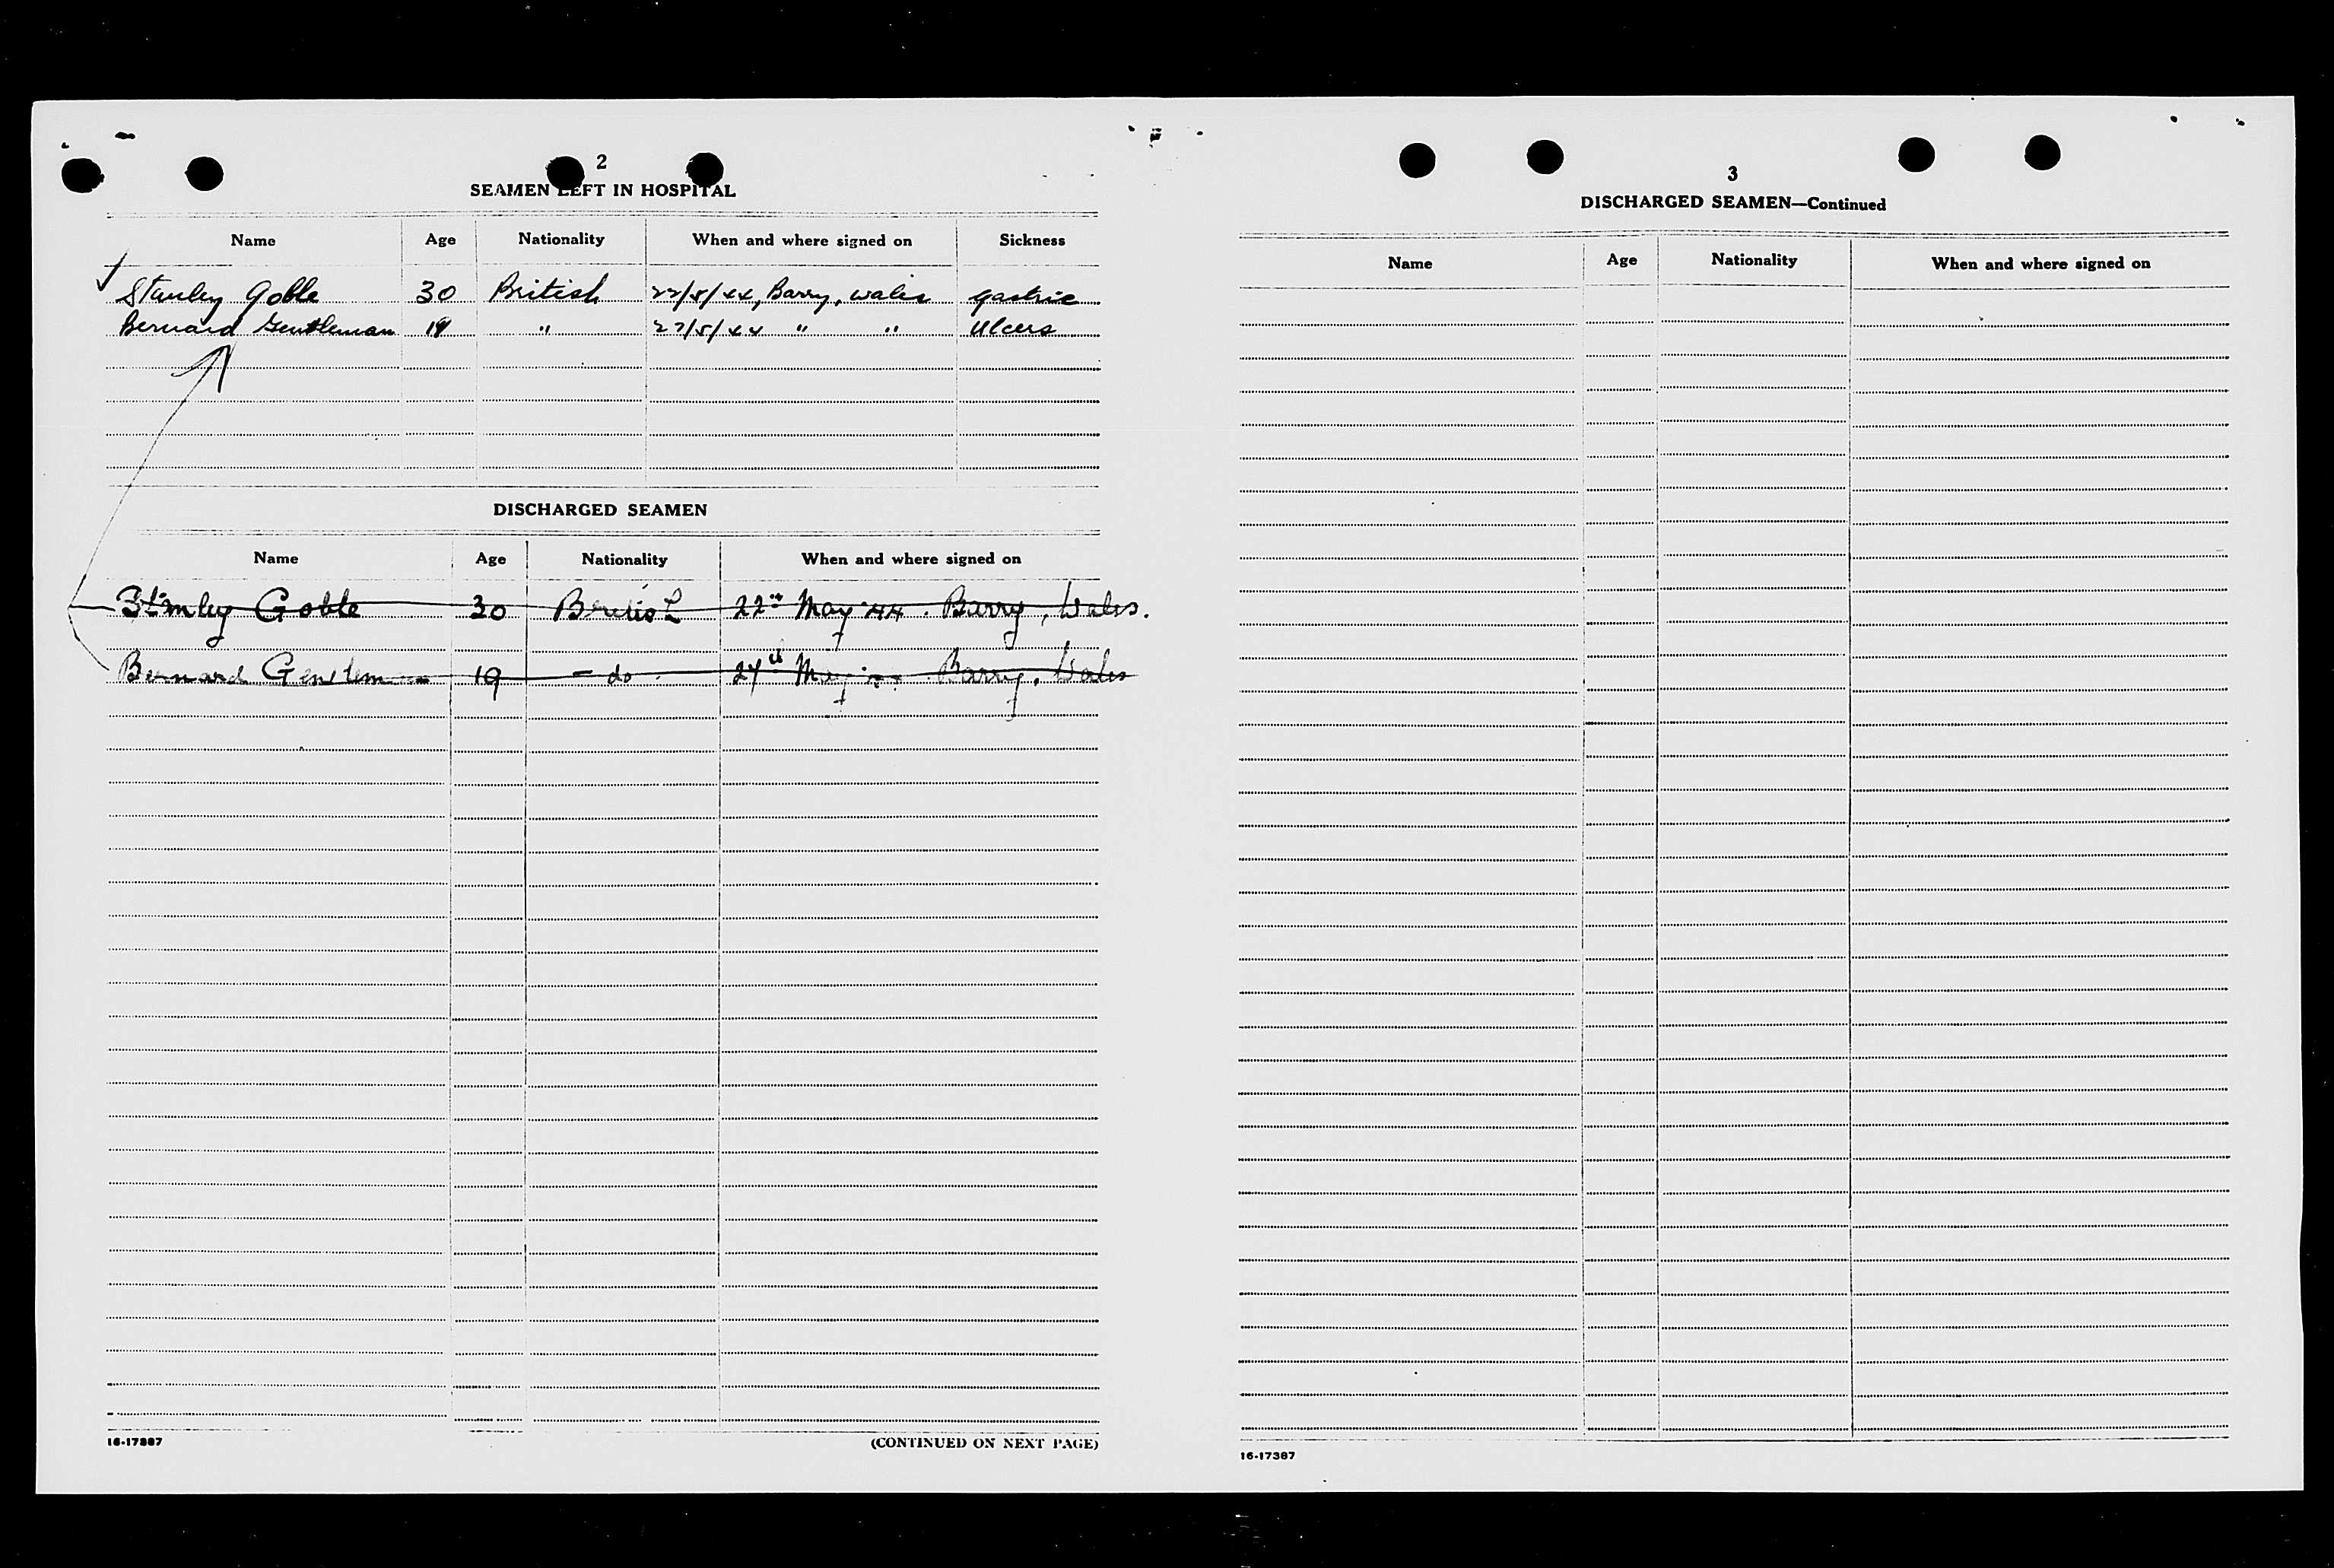 2
SEAMEN LEFT IN HOSPITAL
Name Age Nationality When and where signed on Sickness
Stanley Goble 30 British 22/5/44, Barry, Wales gastric
Bernard Gentleman 19 " 27/5/44 " " Ulcers
DISCHARGED SEAMEN
Name Age Nationality When and where signed on
Stanley Goble 30 British 22nd May 44. Barry, Wales.
Bernard Gentleman 19 - do - 27th May 44 Barry, Wales
16-17387 (CONTINUED ON NEXT PAGE)
3
DISCHARGED SEAMEN—Continued
Name Age Nationality When and where signed on
16-17387